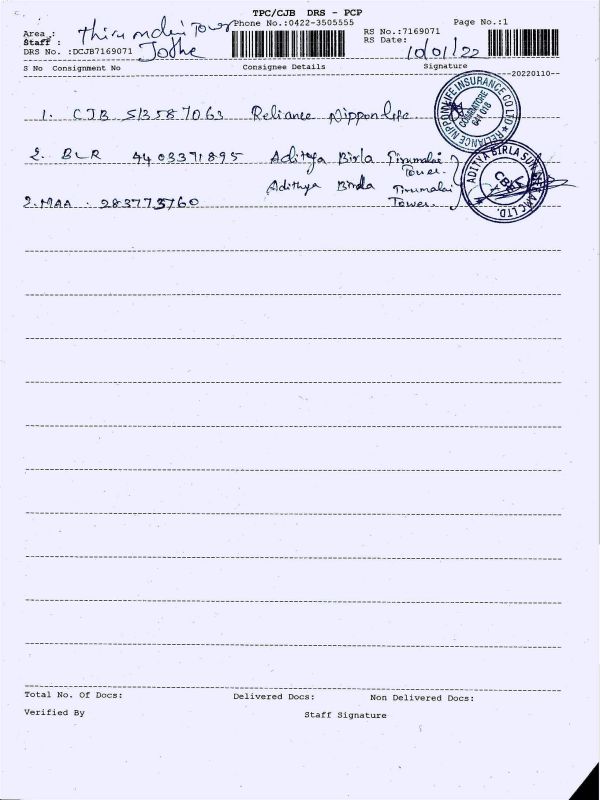 TPC/CJB DRS - PCP
Phone No.:0422-3505555
Page No.:1
Area : Thirumalai Tower
RS No.:7169071
Staff : Jothe
RS Date: 10/01/22
DRS No. :DCJB7169071
S No Consignment No Consignee Details Signature
--20220110--
1. CJB 513587063 Reliance Nippon life
RELIANCE NIPPON LIFE INSURANCE CO LTD
COIMBATORE
641 018
2. BLR 4403371895 Aditya Birla Tirumalai Tower.
Adithya Birla Tirumalai
2. MAA . 283773760 Tower.
ADITYA BIRLA SUN LIFE AMC LTD.
CBE
Total No. Of Docs: Delivered Docs: Non Delivered Docs:
Verified By Staff Signature